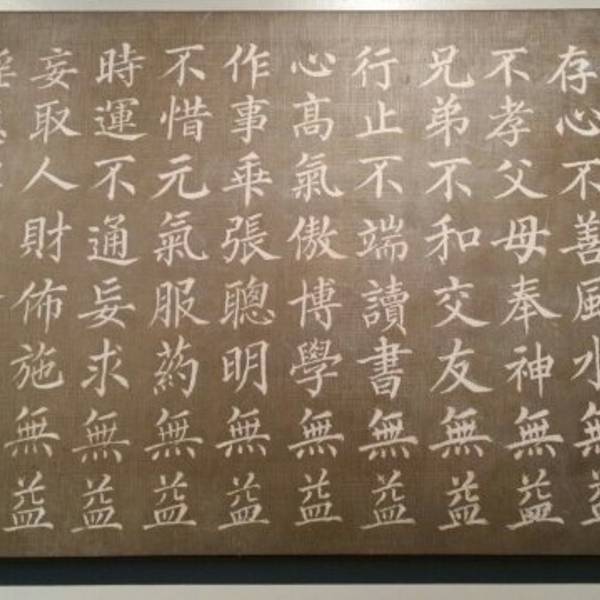 存心不善風水無益
不孝父母奉神無益
兄弟不和交友無益
行止不端讀書無益
心高氣傲博學無益
作事乗張聰明無益
不惜元氣服药無益
時運不通妄求無益
妄取人財佈施無益